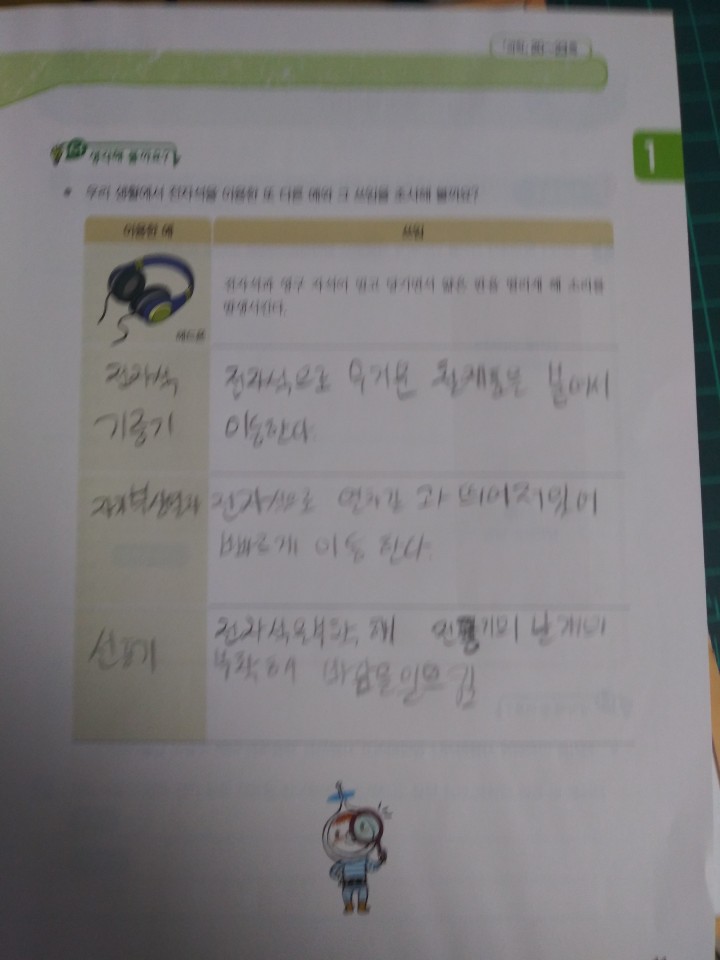 생각해 볼까요?
1
우리 생활에서 전자석을 이용한 또 다른 예와 그 쓰임을 조사해 볼까요?
이용한 예
쓰임
전자석과 영구 자석이 밀고 당기면서 얇은 판을 떨리게 해 소리를
발생시킨다.
헤드폰
전자석
기중기
전자석으로 무거운 철제품을 붙여서
이동한다.
자기부상열차
전자석으로 열차가 떠어져있어
빠르게 이동 한다.
선풍기
전자석을부착해 선풍기의 날개의
부착해서 바람을일으킴